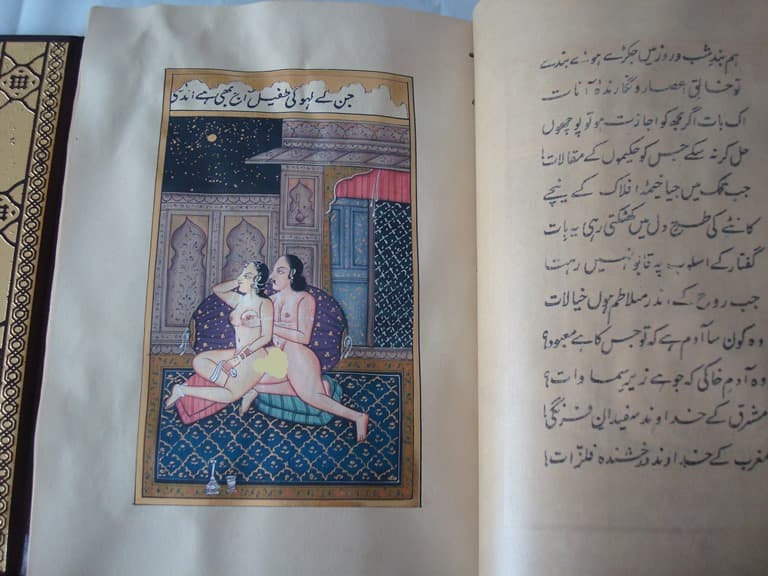 جن کے لہو کی طفیل آج بھی ہے
ہم بندِ شب و روز میں جکڑے ہوئے بندے
تو خالقِ اعصار و نگارندۂ آنات
اک بات اگر مجھ کو اجازت ہو تو پوچھوں
حل کر نہ سکے جس کو حکیموں کے مقالات!
جب تک میں جیا خیمۂ افلاک کے نیچے
کانٹے کی طرح دل میں کھٹکتی رہی یہ بات
گفتار کے اسلوب پہ قابو نہیں رہتا
جب روح کے اندر متلاطم ہوں خیالات
وہ کون سا آدم ہے کہ تو جس کا ہے معبود؟
وہ آدمِ خاکی کہ جو ہے زیرِ سماوات؟
مشرق کے خداوند سفیدانِ فرنگی!
مغرب کے خداوند درخشندہ فلزّات!